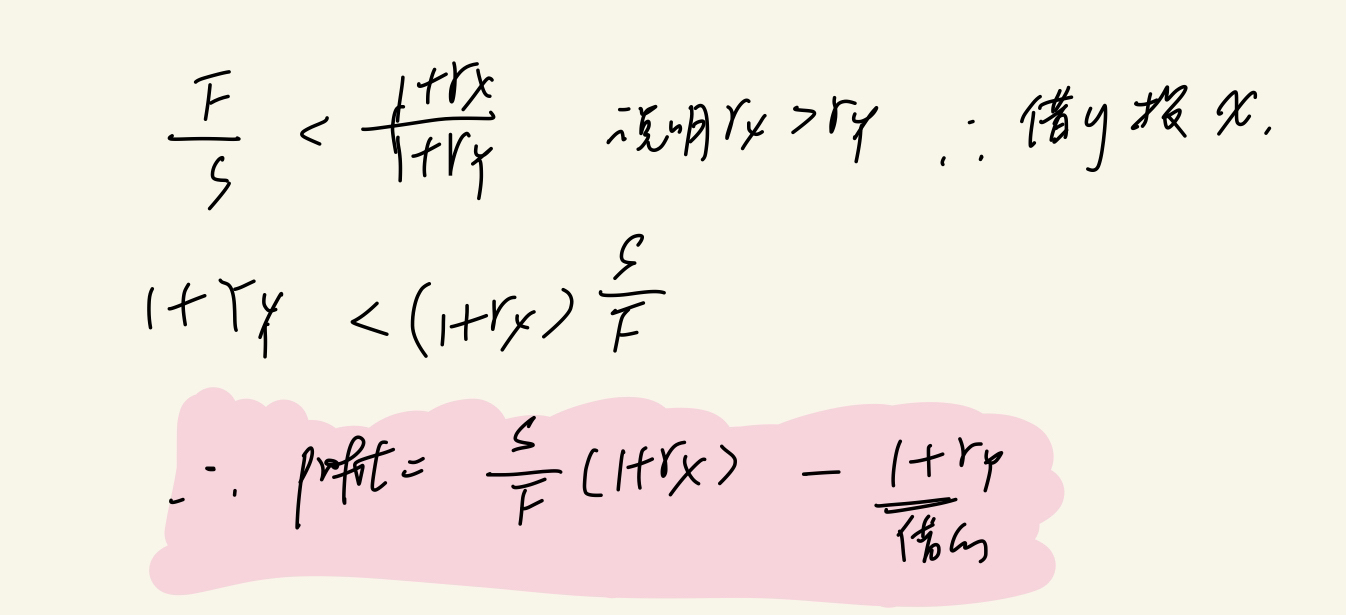 F/S < (1+rx)/(1+ry) 说明 rx > ry ∴ 借y投x.
1+ry < (1+rx) S/F
∴ profit = S/F (1+rx) - 1+ry
借的